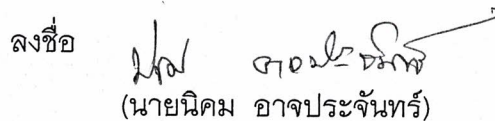 ลงชื่อ
(นายนิคม อาจประจันทร์)